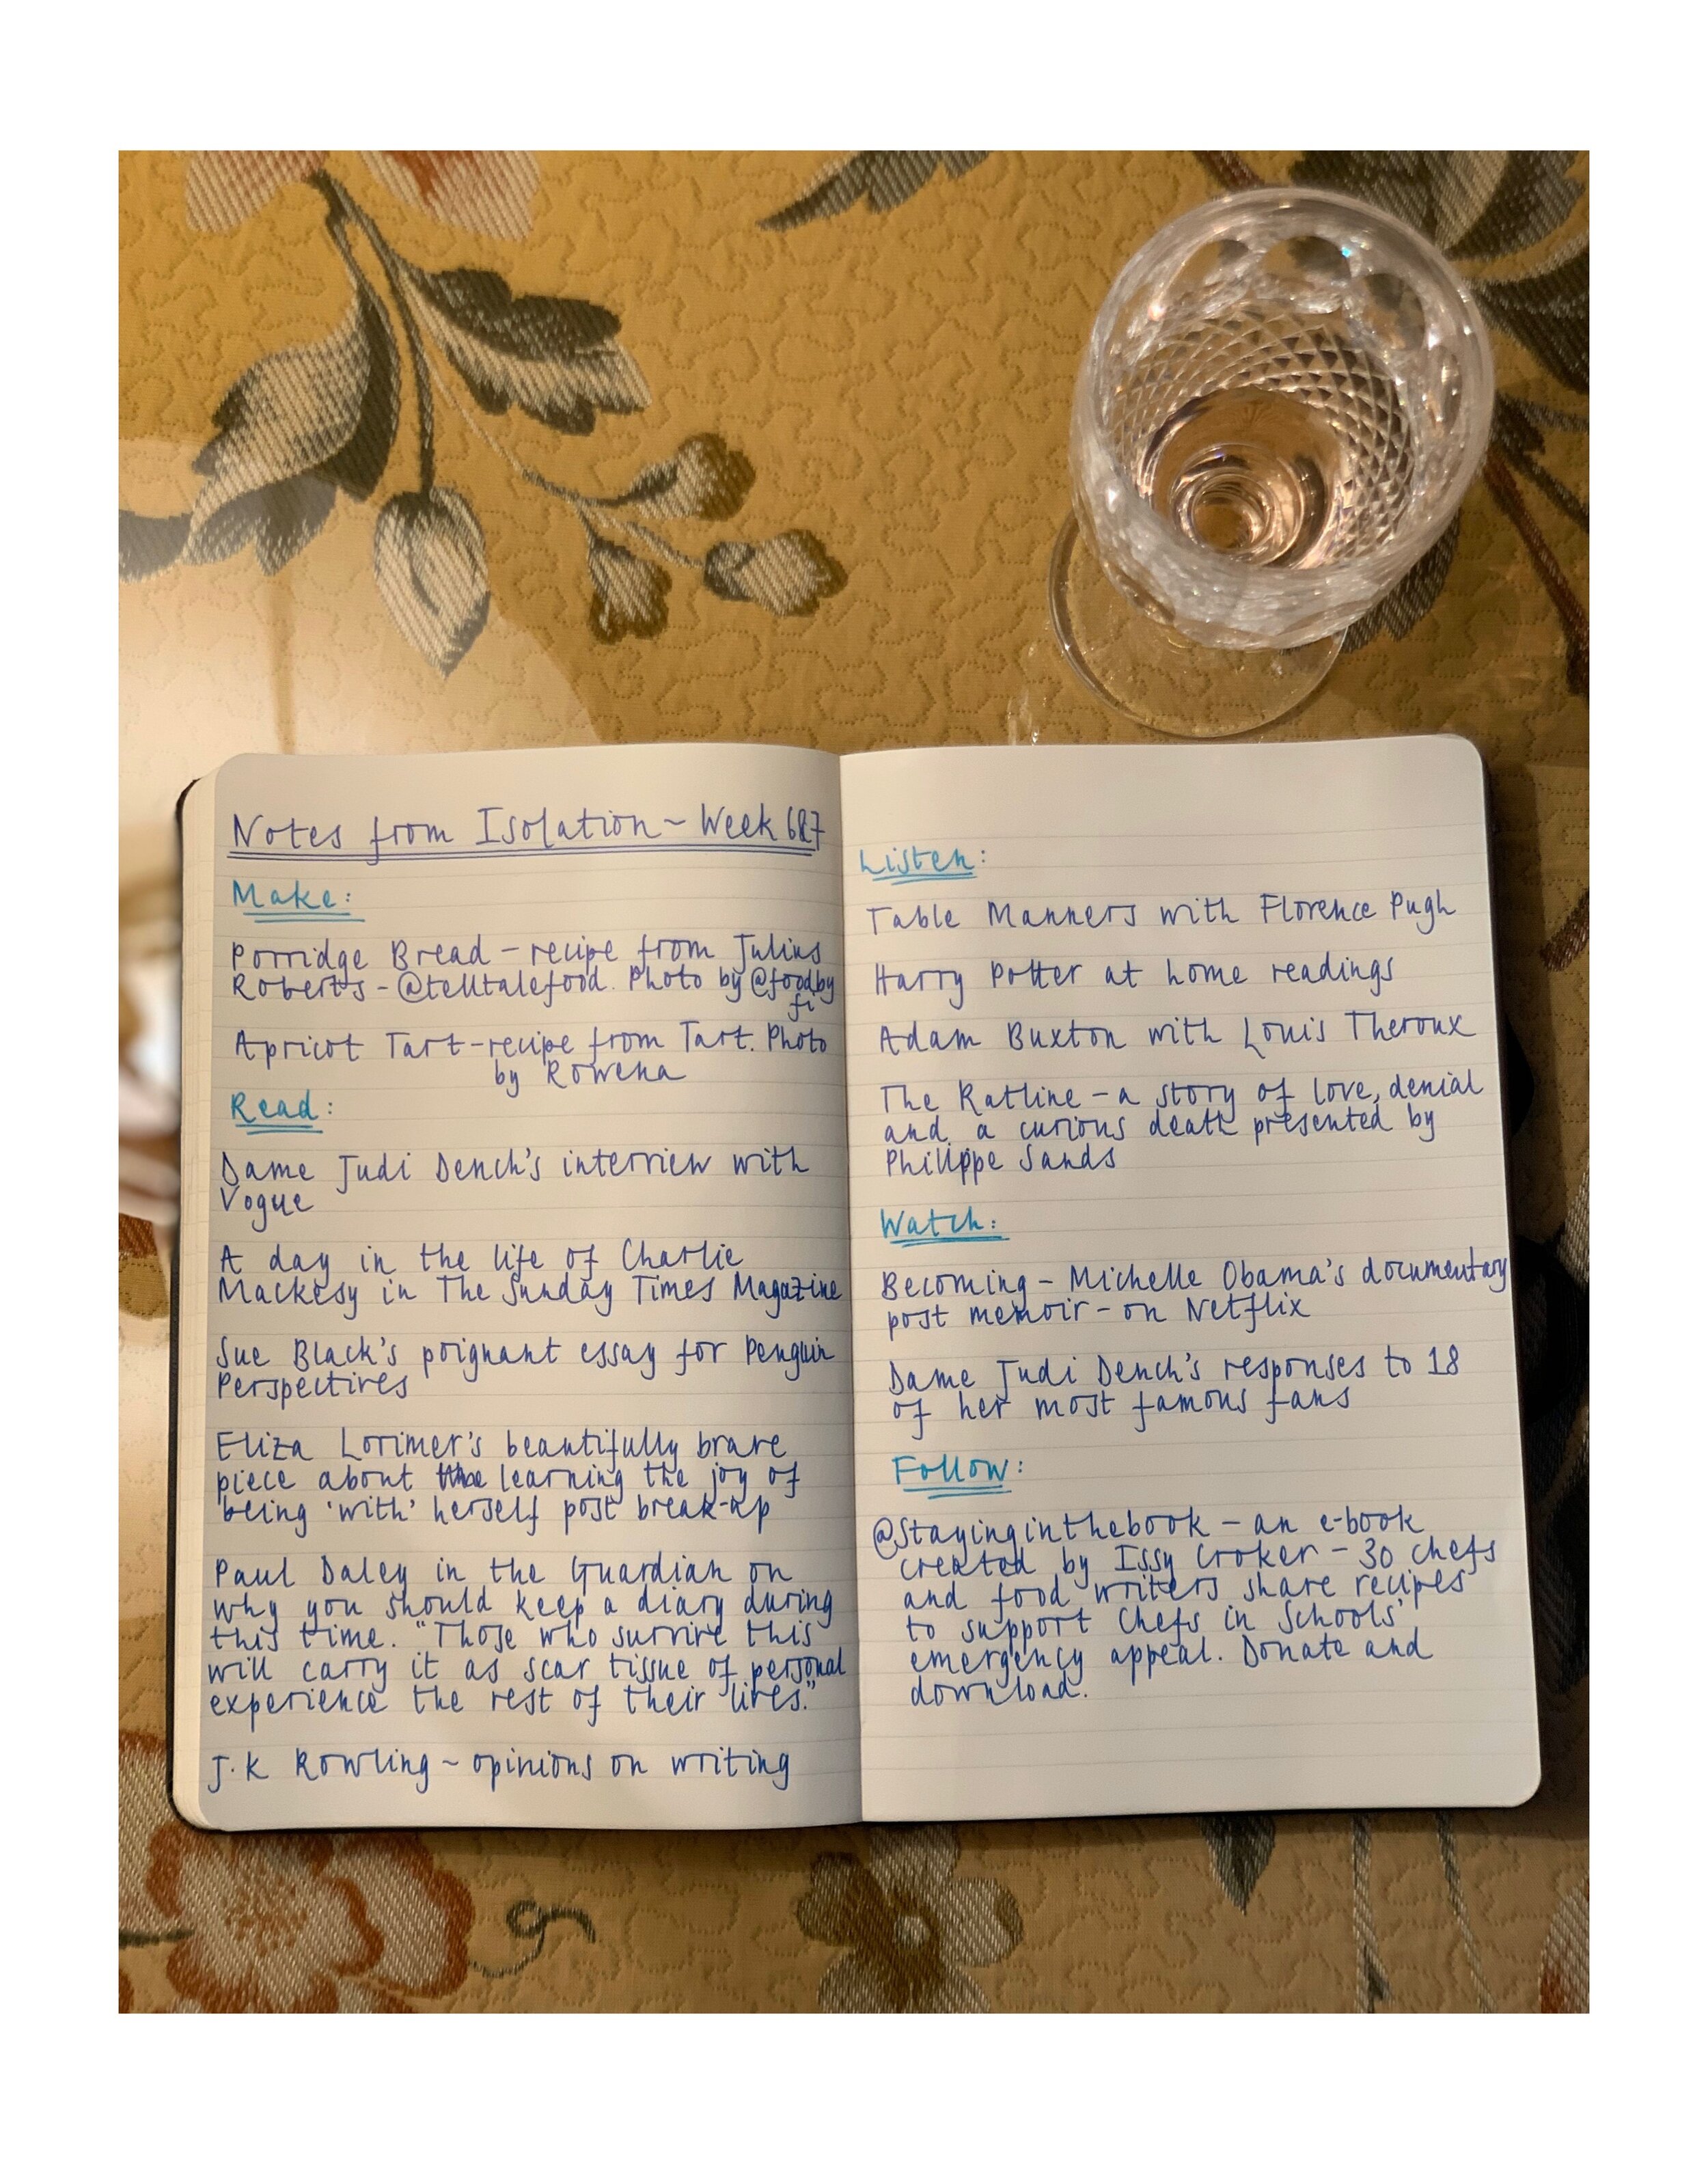 Notes from Isolation ~ Week 6&7
Make:
Porridge Bread - recipe from Julius
Roberts - @telltalefood. Photo by @foodby
fi
Apricot Tart - recipe from Tart. Photo
by Rowena
Read:
Dame Judi Dench's interview with
Vogue
A day in the life of Charlie
Mackesy in The Sunday Times Magazine
Sue Black's poignant essay for Penguin
Perspectives
Eliza Lorimer's beautifully brave
piece about learning the joy of
being 'with' herself post break-up
Paul Daley in the Guardian on
why you should keep a diary during
this time. "Those who survive this
will carry it as scar tissue of personal
experience the rest of their lives."
J.K Rowling ~ opinions on writing
Listen:
Table Manners with Florence Pugh
Harry Potter at home readings
Adam Buxton with Louis Theroux
The Ratline - a story of love, denial
and a curious death presented by
Philippe Sands
Watch:
Becoming - Michelle Obama's documentary
post memoir - on Netflix
Dame Judi Dench's responses to 18
of her most famous fans
Follow:
@Stayinginthebook - an e-book
created by Issy Croker - 30 chefs
and food writers share recipes
to support Chefs in Schools'
emergency appeal. Donate and
download.